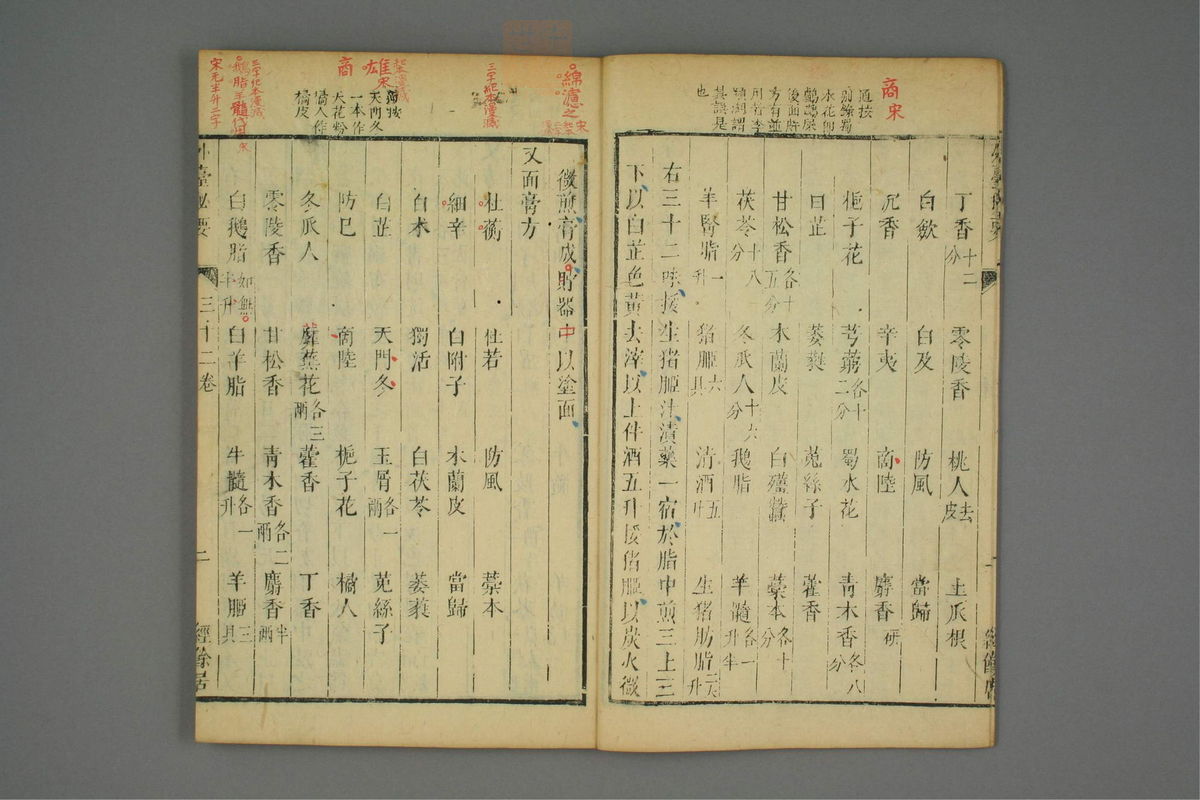 商宋
丁香十二分 零陵香 桃人去皮 土瓜根
白蘞 白及 防風 當歸
沉香 辛夷 商陸 麝香研
梔子花 芎藭各十二分 蜀水花 青木香各八分
白芷 萎蕤 菟絲子 藿香
甘松香各十五分 木蘭皮 白殭蠶 藁本各十分
茯苓十八分 冬瓜人十六分 鵝脂 羊髓各一升半
羊腎脂一升 猪胰六具 清酒五升 生猪肪脂
右三十二味挼生猪胰汁漬藥一宿於脂中煎三上三
下以白芷色黃去滓以上件酒五升挼猪胰以炭火微
綿濾之
微煎膏成貯器中以塗面
又面膏方
杜蘅 杜若 防風 藁本
細辛 白附子 木蘭皮 當歸
白朮 獨活 白茯苓 萎蕤
白芷 天門冬 玉屑各一兩 菟絲子
防巳 商陸 梔子花 橘人
冬瓜人 蘼蕪花各三兩 藿香 丁香
零陵香 甘松香 青木香各二兩 麝香半兩
白鵝脂如無半升 白羊脂 牛髓各一升 羊胰三具
商
天門冬
一本作
天花粉
橘人作
橘皮
三十二卷 二 經餘居